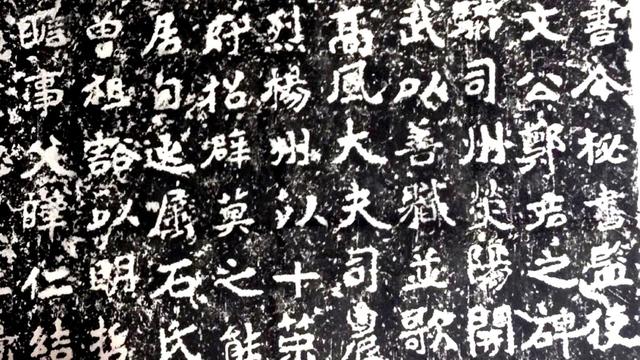 書令秘書監使
文公鄭君之碑
驎司州熒陽開
武以善職並歌
高風大夫司農
烈楊州以十策
府招辟莫之能
居自逸屬石氏
曾祖豁以明哲
瞻事父曄仁結